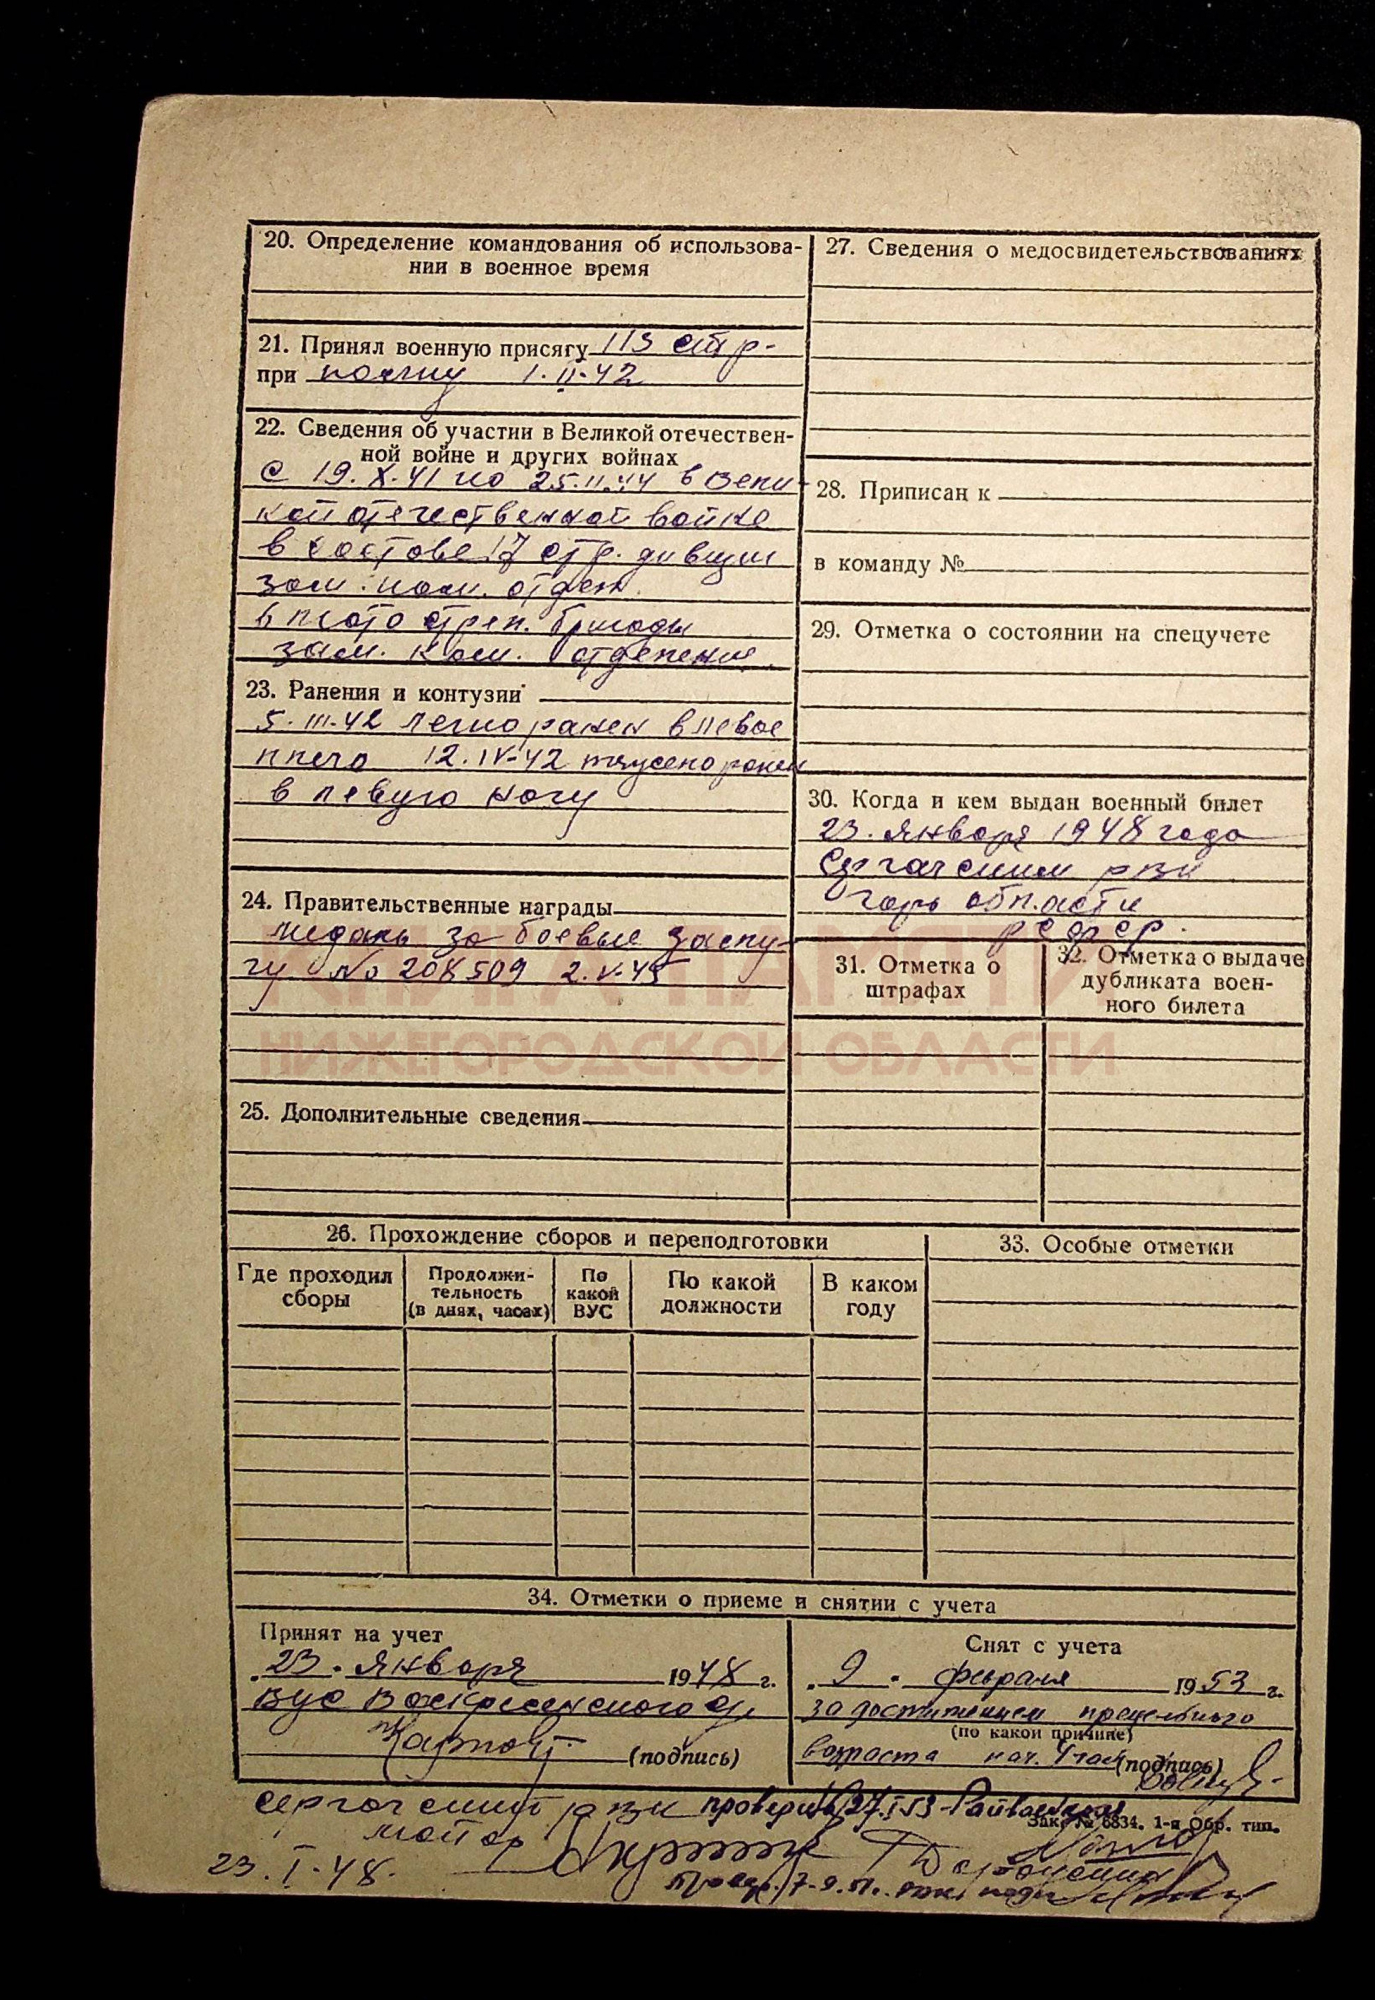 20. Определение командования об использова-
нии в военное время
21. Принял военную присягу 113 стр-
при полку 1.II.42
22. Сведения об участии в Великой отечествен-
ной войне и других войнах
с 19.X.41 по 25.II.44 в Вели-
кой отечественной войне
в составе 17 стр. дивизии
зам. ком. отдел.
стрел. бригады
зам. ком. отделения
23. Ранения и контузии
5.III.42 легко ранен в левое
плечо 12.IV-42 тяжело ранен
в левую ногу
24. Правительственные награды
медаль за боевые заслу-
гу № 208509 2.V.45
25. Дополнительные сведения
27. Сведения о медосвидетельствованиях
28. Приписан к
в команду №
29. Отметка о состоянии на спецучете
30. Когда и кем выдан военный билет
23. января 1948 года
Сергачским рвк
Горь области
РСФСР.
31. Отметка о
штрафах
32. Отметка о выдаче
дубликата воен-
ного билета
КНИГА ПАМЯТИ
НИЖЕГОРОДСКОЙ ОБЛАСТИ
26. Прохождение сборов и переподготовки
Где проходил
сборы
Продолжи-
тельность
(в днях, часах)
По
какой
ВУС
По какой
должности
В каком
году
33. Особые отметки
34. Отметки о приеме и снятии с учета
Принят на учет
23. января 1948 г.
ВУС Воскресенского
(подпись)
Снят с учета
9. февраля 1953 г.
за достижением предельного
(по какой причине)
возраста нач. 4 части (подпись)
Сергачский рвк проверил 27.I 53
Зак. № 6834. 1-я Обр. тип.
майор
23.I.48.